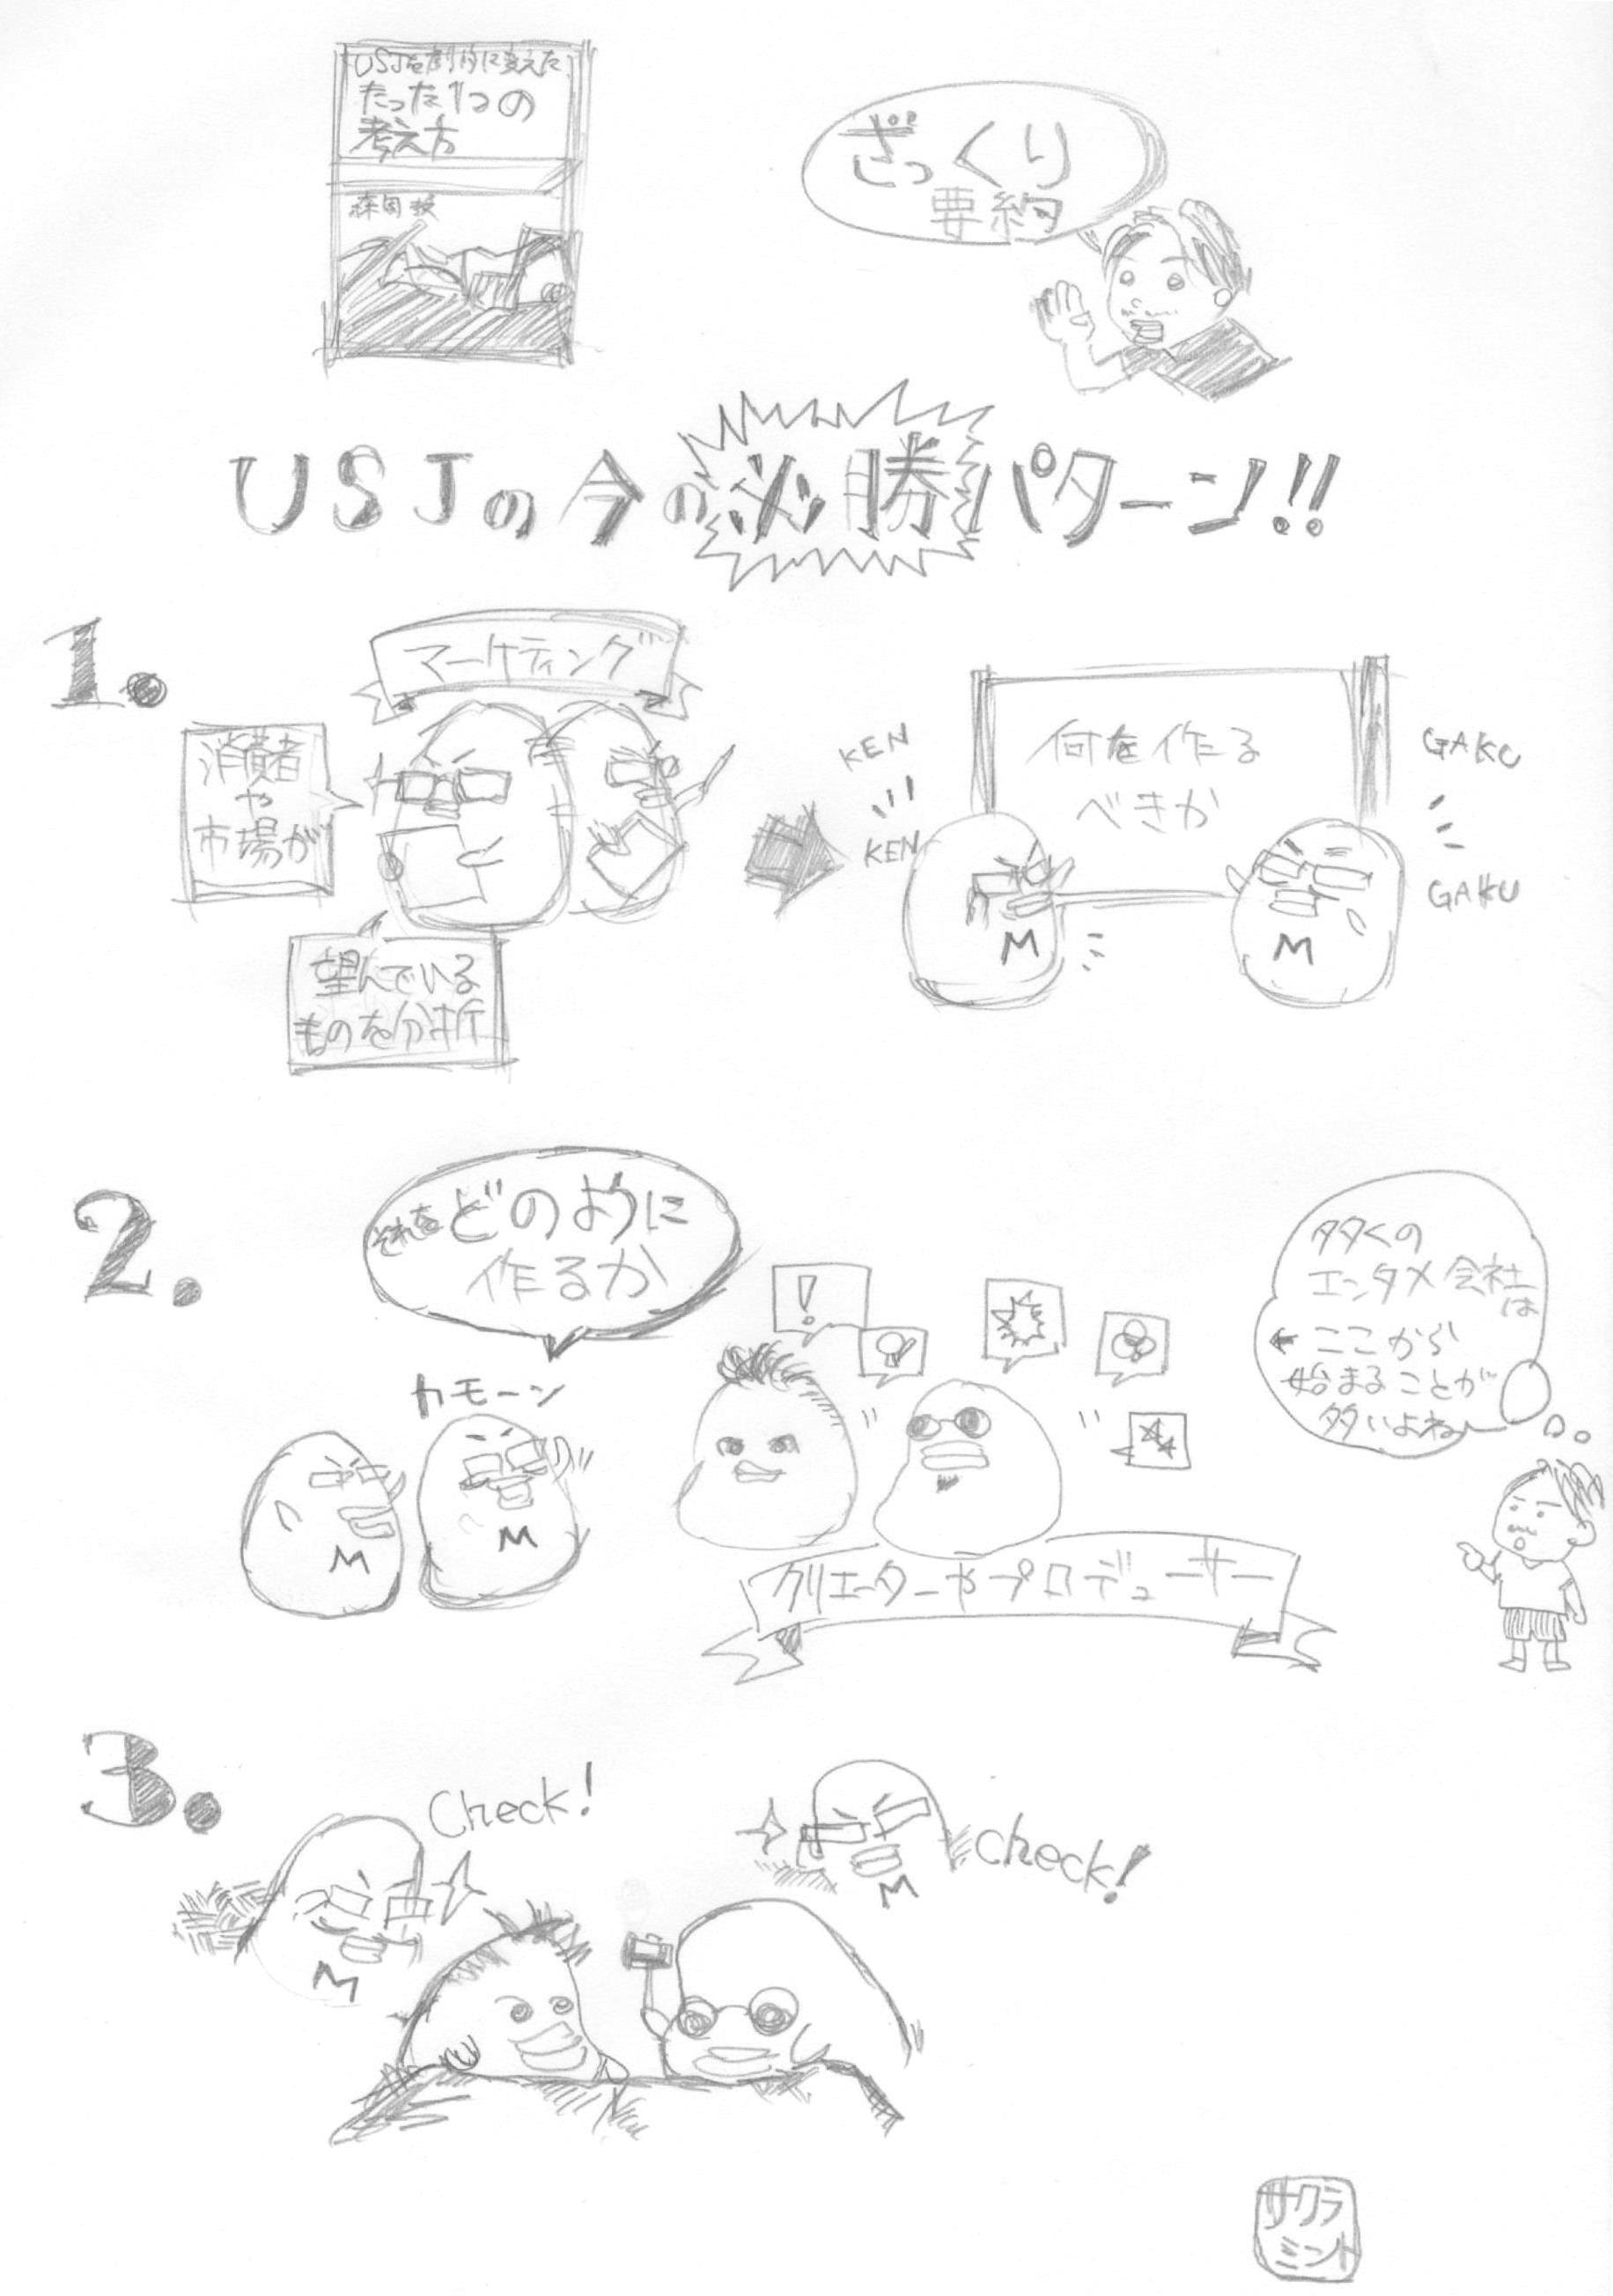 USJを劇的に変えた
たった1つの
考え方
森岡毅
ざっくり
要約
USJの今の必勝パターン!!
1.
マーケティング
消費者
や
市場が
望んでいる
ものを分析
何を作る
べきか
KEN
KEN
GAKU
GAKU
M
M
2.
それをどのように
作るか
カモーン
M
M
!
クリエーターやプロデューサー
多くの
エンタメ会社
は
←ここから
始まることが
多いよね〜
3.
Check!
check!
M
M
サクラ
ミント